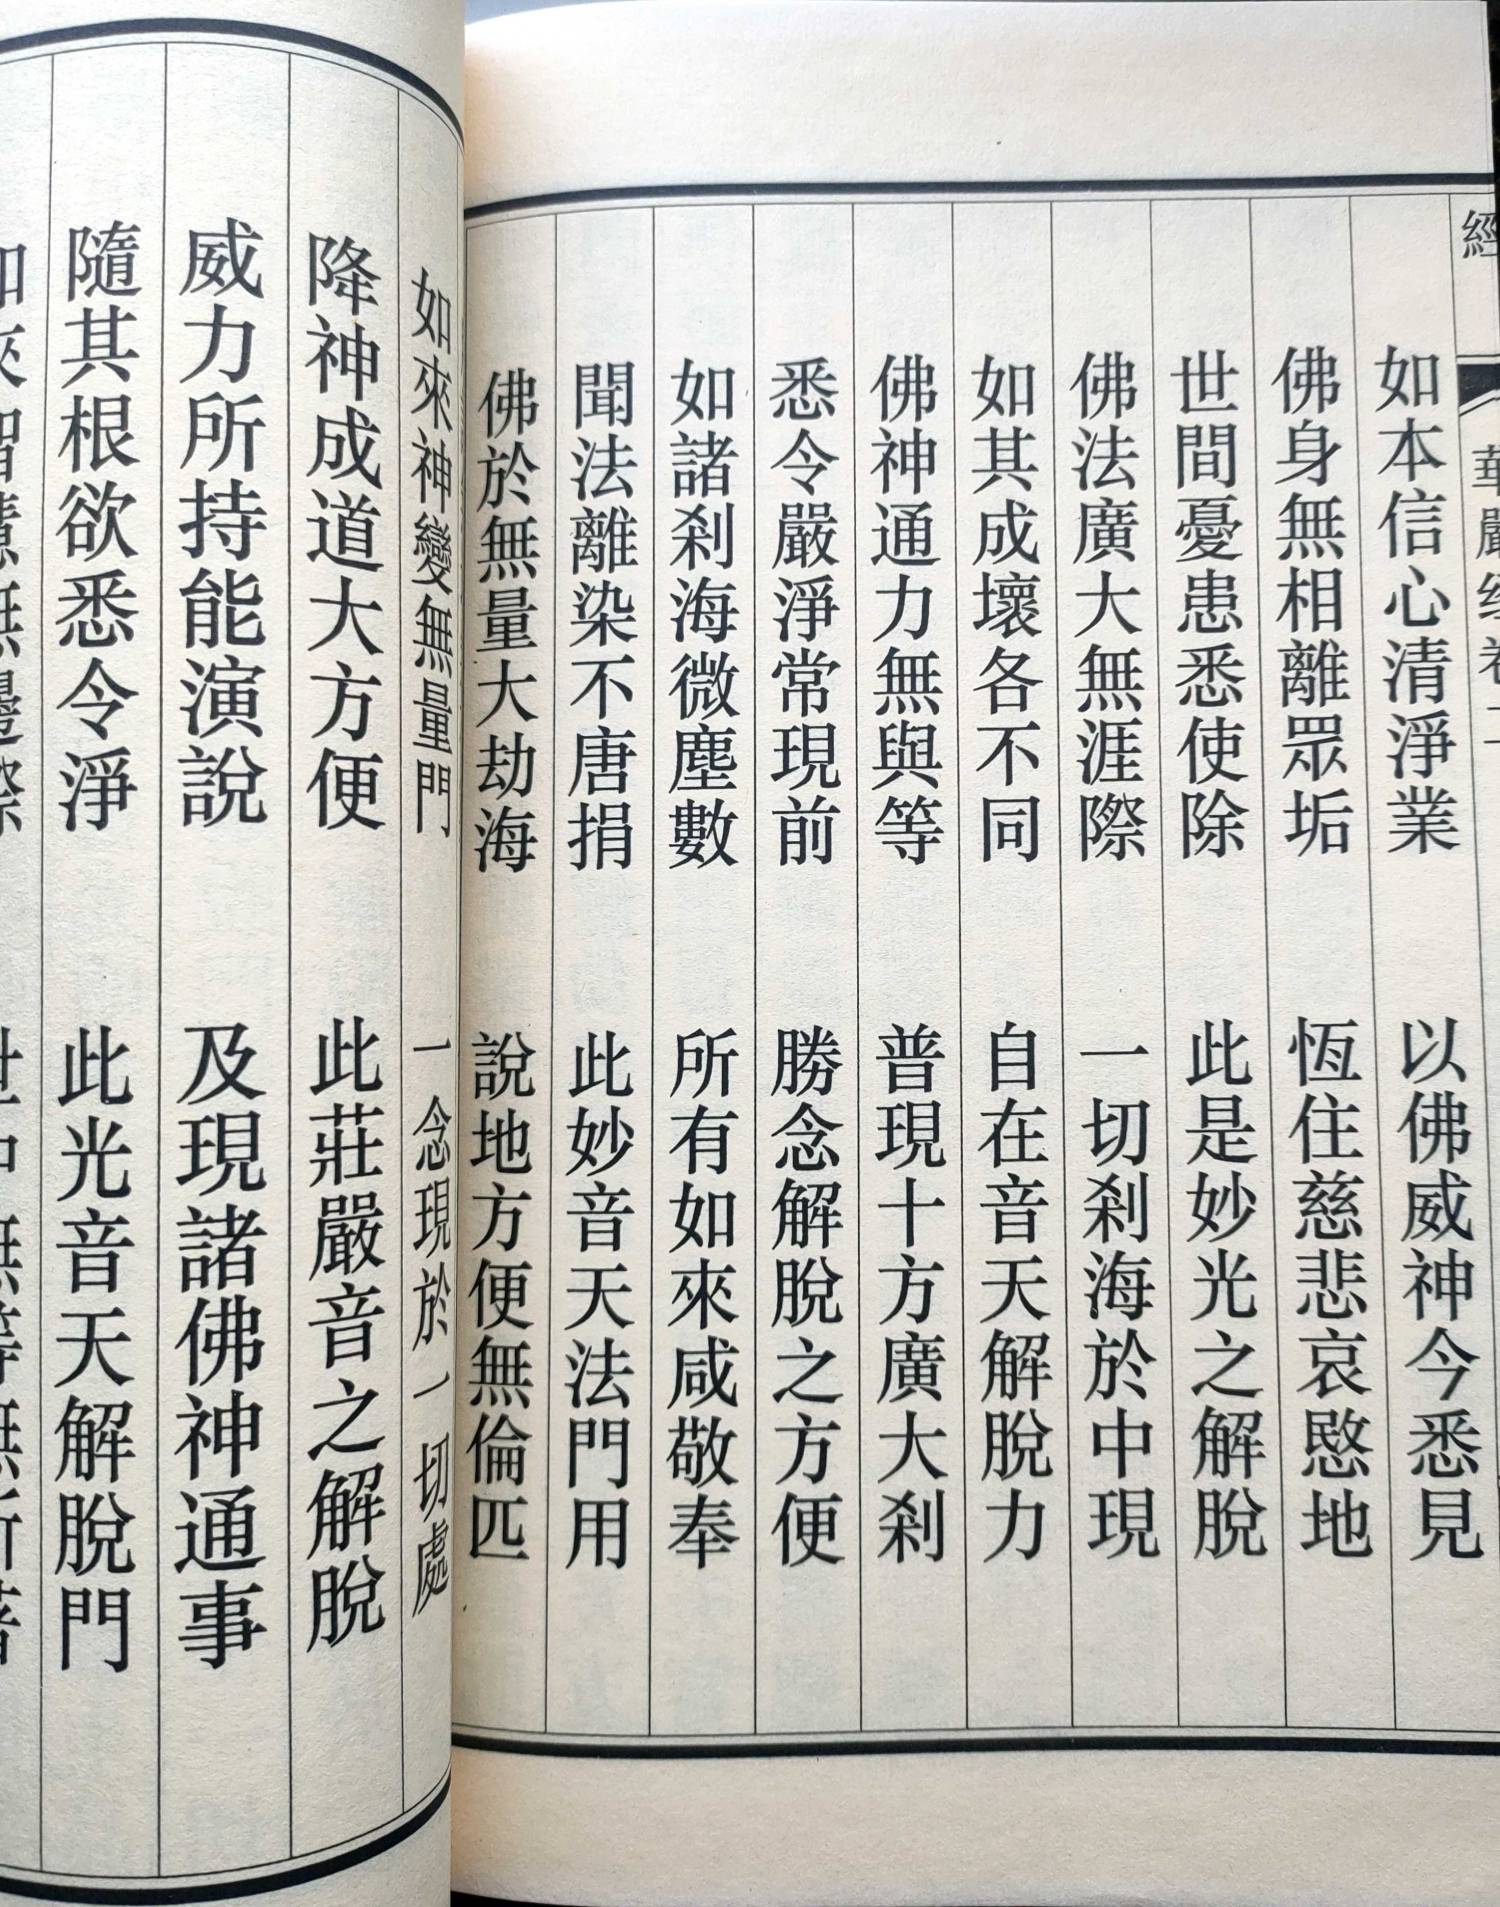 經
華嚴经卷二
如本信心清淨業　以佛威神今悉見
佛身無相離眾垢　恆住慈悲哀愍地
世間憂患悉使除　此是妙光之解脫
佛法廣大無涯際　一切剎海於中現
如其成壞各不同　自在音天解脫力
佛神通力無與等　普現十方廣大剎
悉令嚴淨常現前　勝念解脫之方便
如諸剎海微塵數　所有如來咸敬奉
聞法離染不唐捐　此妙音天法門用
佛於無量大劫海　說地方便無倫匹
如來神變無量門　一念現於一切處
降神成道大方便　此莊嚴音之解脫
威力所持能演說　及現諸佛神通事
隨其根欲悉令淨　此光音天解脫門
如來智慧無邊際　世中無等無所著